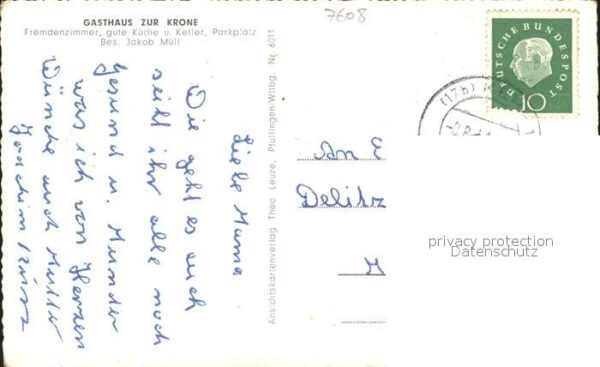 7608
GASTHAUS ZUR KRONE
Fremdenzimmer, gute Küche u. Keller, Parkplatz
Bes. Jakob Müll
Liebe Mama
Wie geht es euch
seit ihr alle noch
Gesund u. Munder
was ich von Herzen
Wünsche auch Mutter
Joachim
Ansichtskartenverlag Theo Leuze, Pfullingen-Wttbg. N( 6011
DEUTSCHE BUNDESPOST
10
(17b)
An E
Delitz
privacy protection
Datenschutz